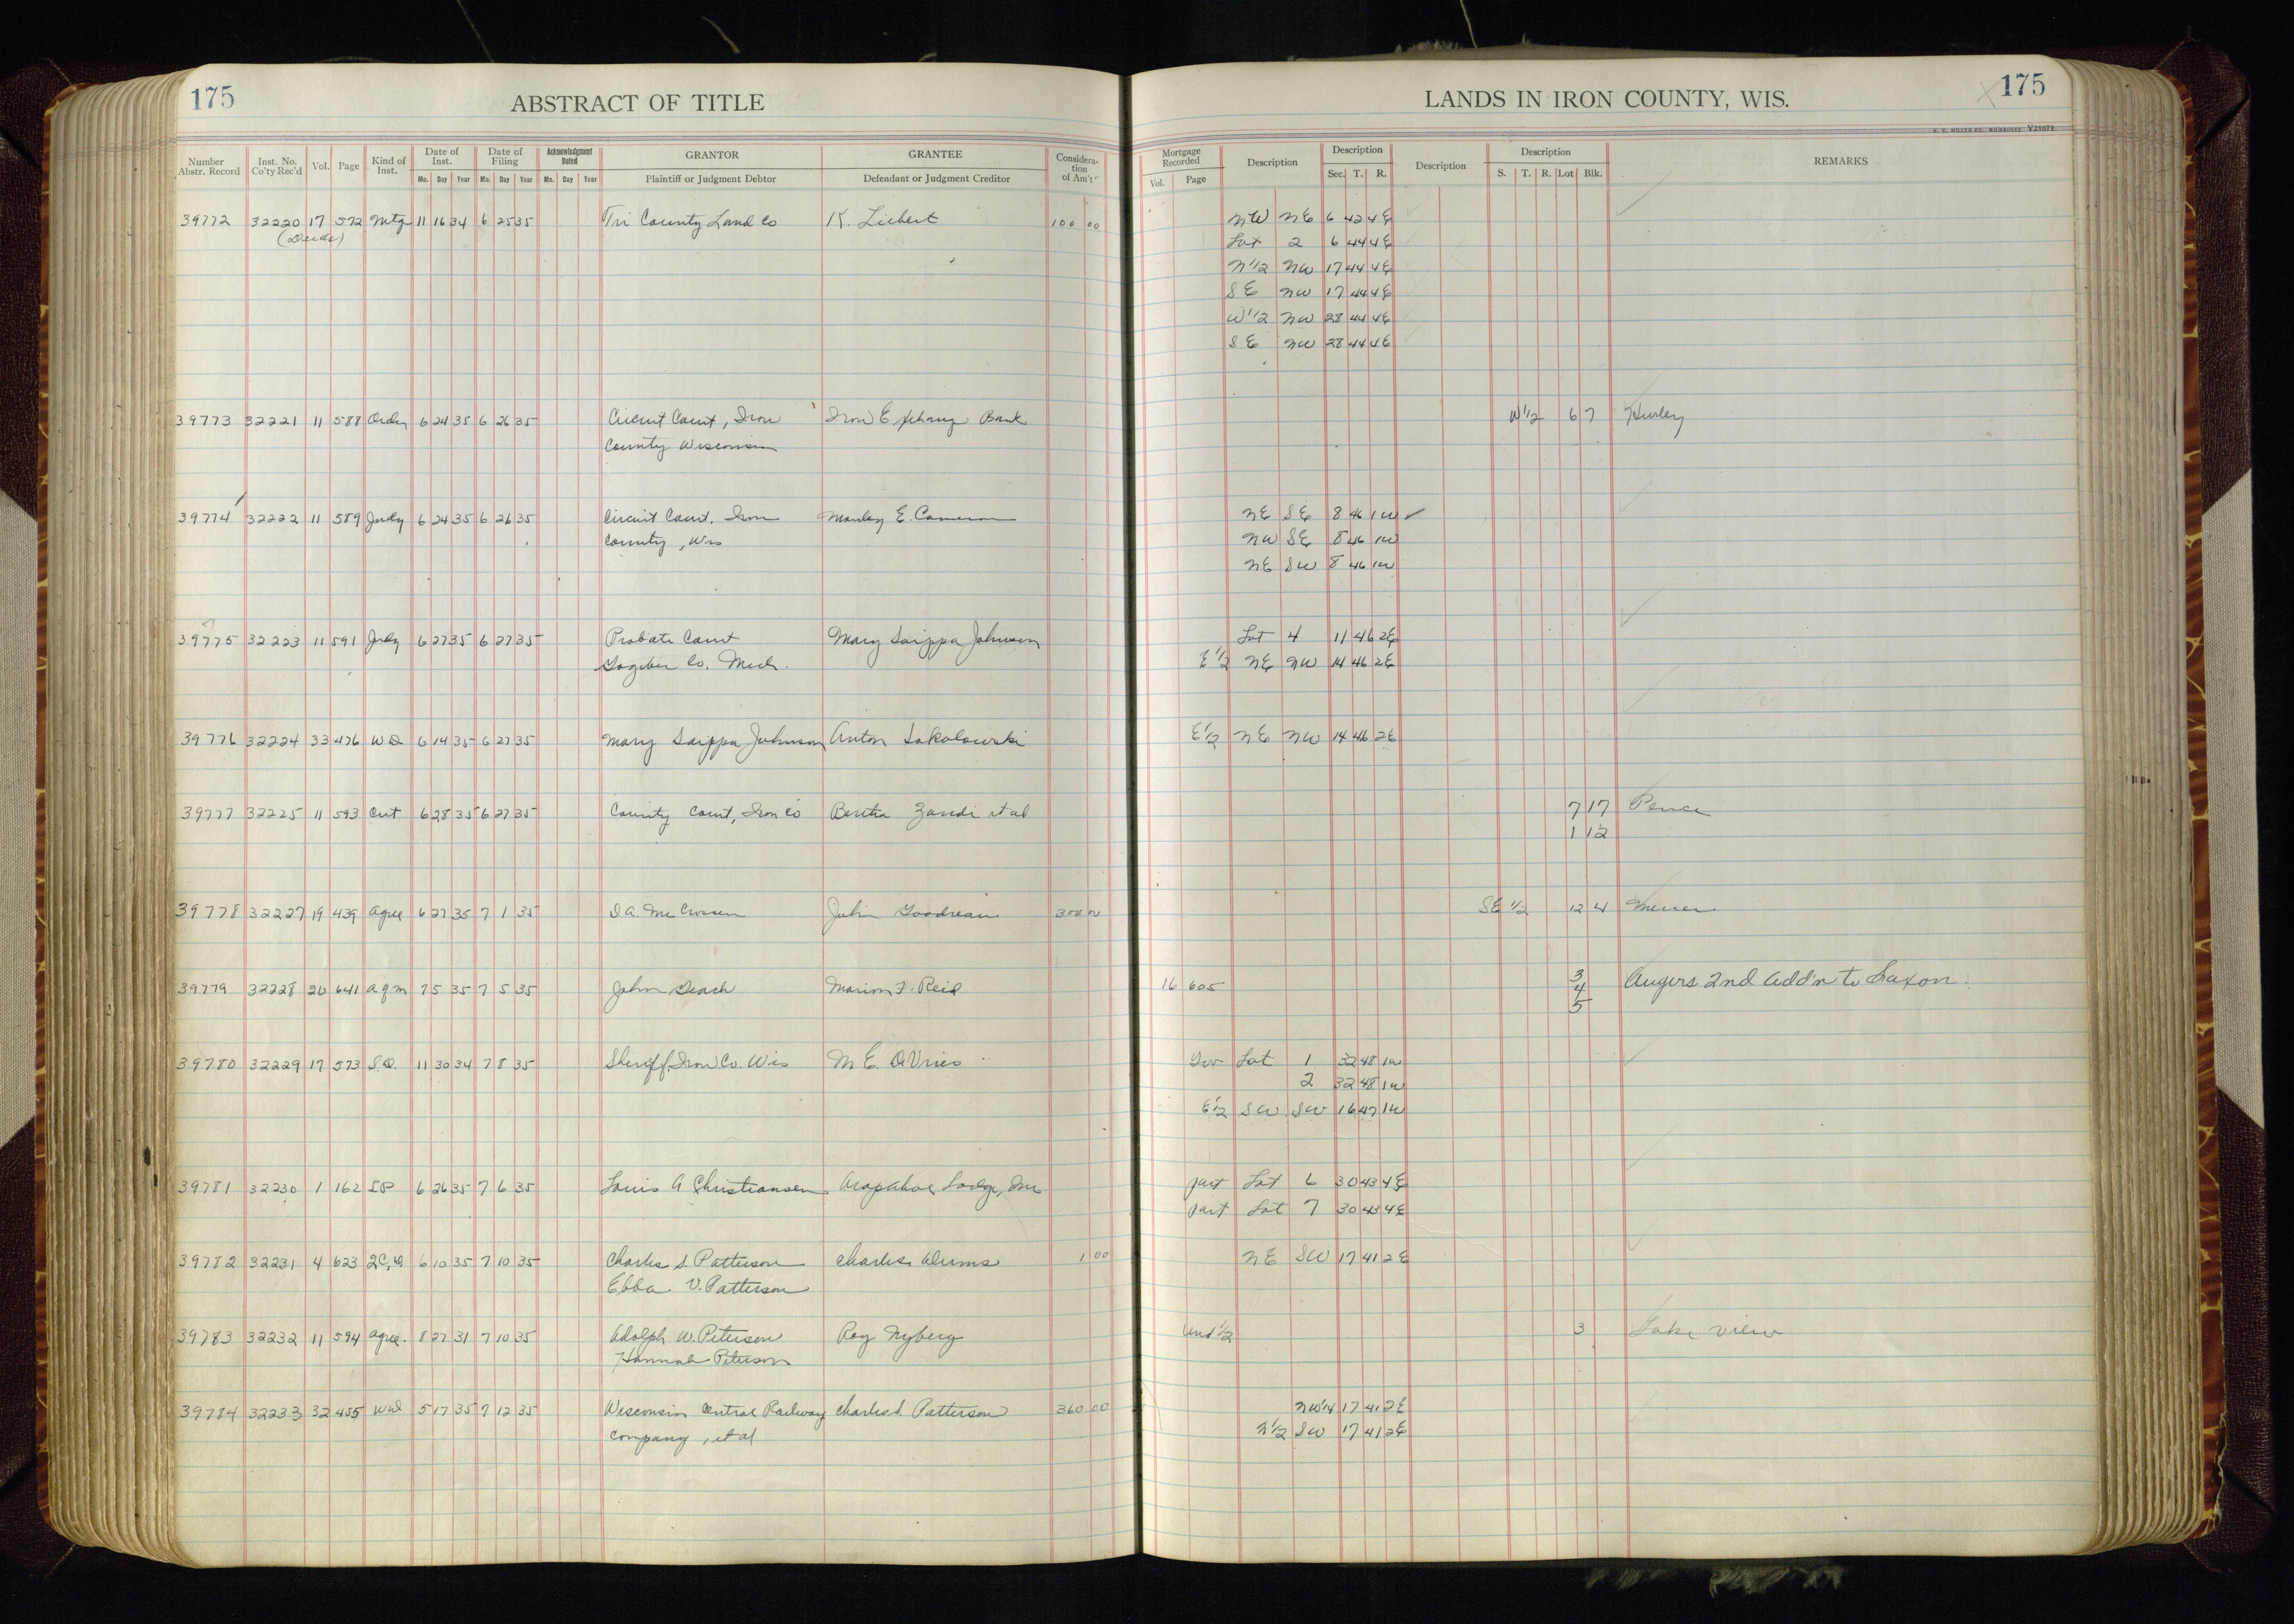 175
ABSTRACT OF TITLE
LANDS IN IRON COUNTY, WIS.
175
H. C. MILLER CO., MILWAUKEE Y21071
Number Abstr. Record Inst. No. Co'ty Rec'd Vol. Page Kind of Inst. Date of Inst. Date of Filing Acknowledgment Dated GRANTOR GRANTEE Consideration of Am't Mortgage Recorded Description Description Description Description REMARKS
Mo. Day Year Mo. Day Year Mo. Day Year Plaintiff or Judgment Debtor Defendant or Judgment Creditor Vol. Page Sec. T. R. S. T. R. Lot Blk.
39772 32220 17 572 Mtg 11 16 34 6 25 35 Tri County Land Co K. Liebert 100 00 NW NE 6 42 4E
(Deeds) Lot 2 6 44 4E
N1/2 NW 17 44 4E
SE NW 17 44 4E
W1/2 NW 28 44 4E
SE NW 28 44 4E
39773 32221 11 588 Order 6 24 35 6 26 35 Circuit Court, Iron Iron Exchang Bank W1/2 6 7 Hurley
County Wisconsin
39774 32222 11 589 Judg 6 24 35 6 26 35 Circuit Court, Iron Manley E. Cameron NE SE 8 46 1W
County, Wis NW SE 8 46 1W
NE SW 8 46 1W
39775 32223 11 591 Judg 6 27 35 6 27 35 Probate Court Mary Saippa Johnson Lot 4 11 46 2E
Gogebic Co. Mich. E1/2 NE NW 14 46 2E
39776 32224 33 476 WD 6 14 35 6 27 35 Mary Saippa Johnson Anton Sokolowski E1/2 NE NW 14 46 2E
39777 32225 11 593 Cert 6 28 35 6 27 35 County Court, Iron Co Bertha Zandi et al 7 17 Pence
1 12
39778 32227 19 439 Agree 6 27 35 7 1 35 D.A. McCrossen John Goodreau 300 00 SE 1/2 12 4 Mercer
39779 32228 20 641 Agm 7 5 35 7 5 35 John Deach Marion F. Reid 16 605 3 Augers 2nd Add'n to Saxon
4
5
39780 32229 17 573 S.D. 11 30 34 7 8 35 Sheriff, Iron Co. Wis M. E. DeVries Gov Lot 1 32 48 1W
2 32 48 1W
E1/2 SW SW 16 47 1W
39781 32230 1 162 LP 6 26 35 7 6 35 Louis A Christiansen Arapahoe Lodge, Inc part Lot 6 30 43 4E
part Lot 7 30 43 4E
39782 32231 4 623 2C,D 6 10 35 7 10 35 Charles S. Patterson Charles 1 00 NE SW 17 41 2E
Ebba V. Patterson
39783 32232 11 594 Agree. 8 27 31 7 10 35 Adolph W. Peterson Roy Nyberg Und 1/2 3 Lake View
Hannah Peterson
39784 32233 32 455 Wd 5 17 35 7 12 35 Wisconsin Central Railway Charles S. Patterson 360 00 NW1/4 17 41 2E
Company, et al N1/2 SW 17 41 2E